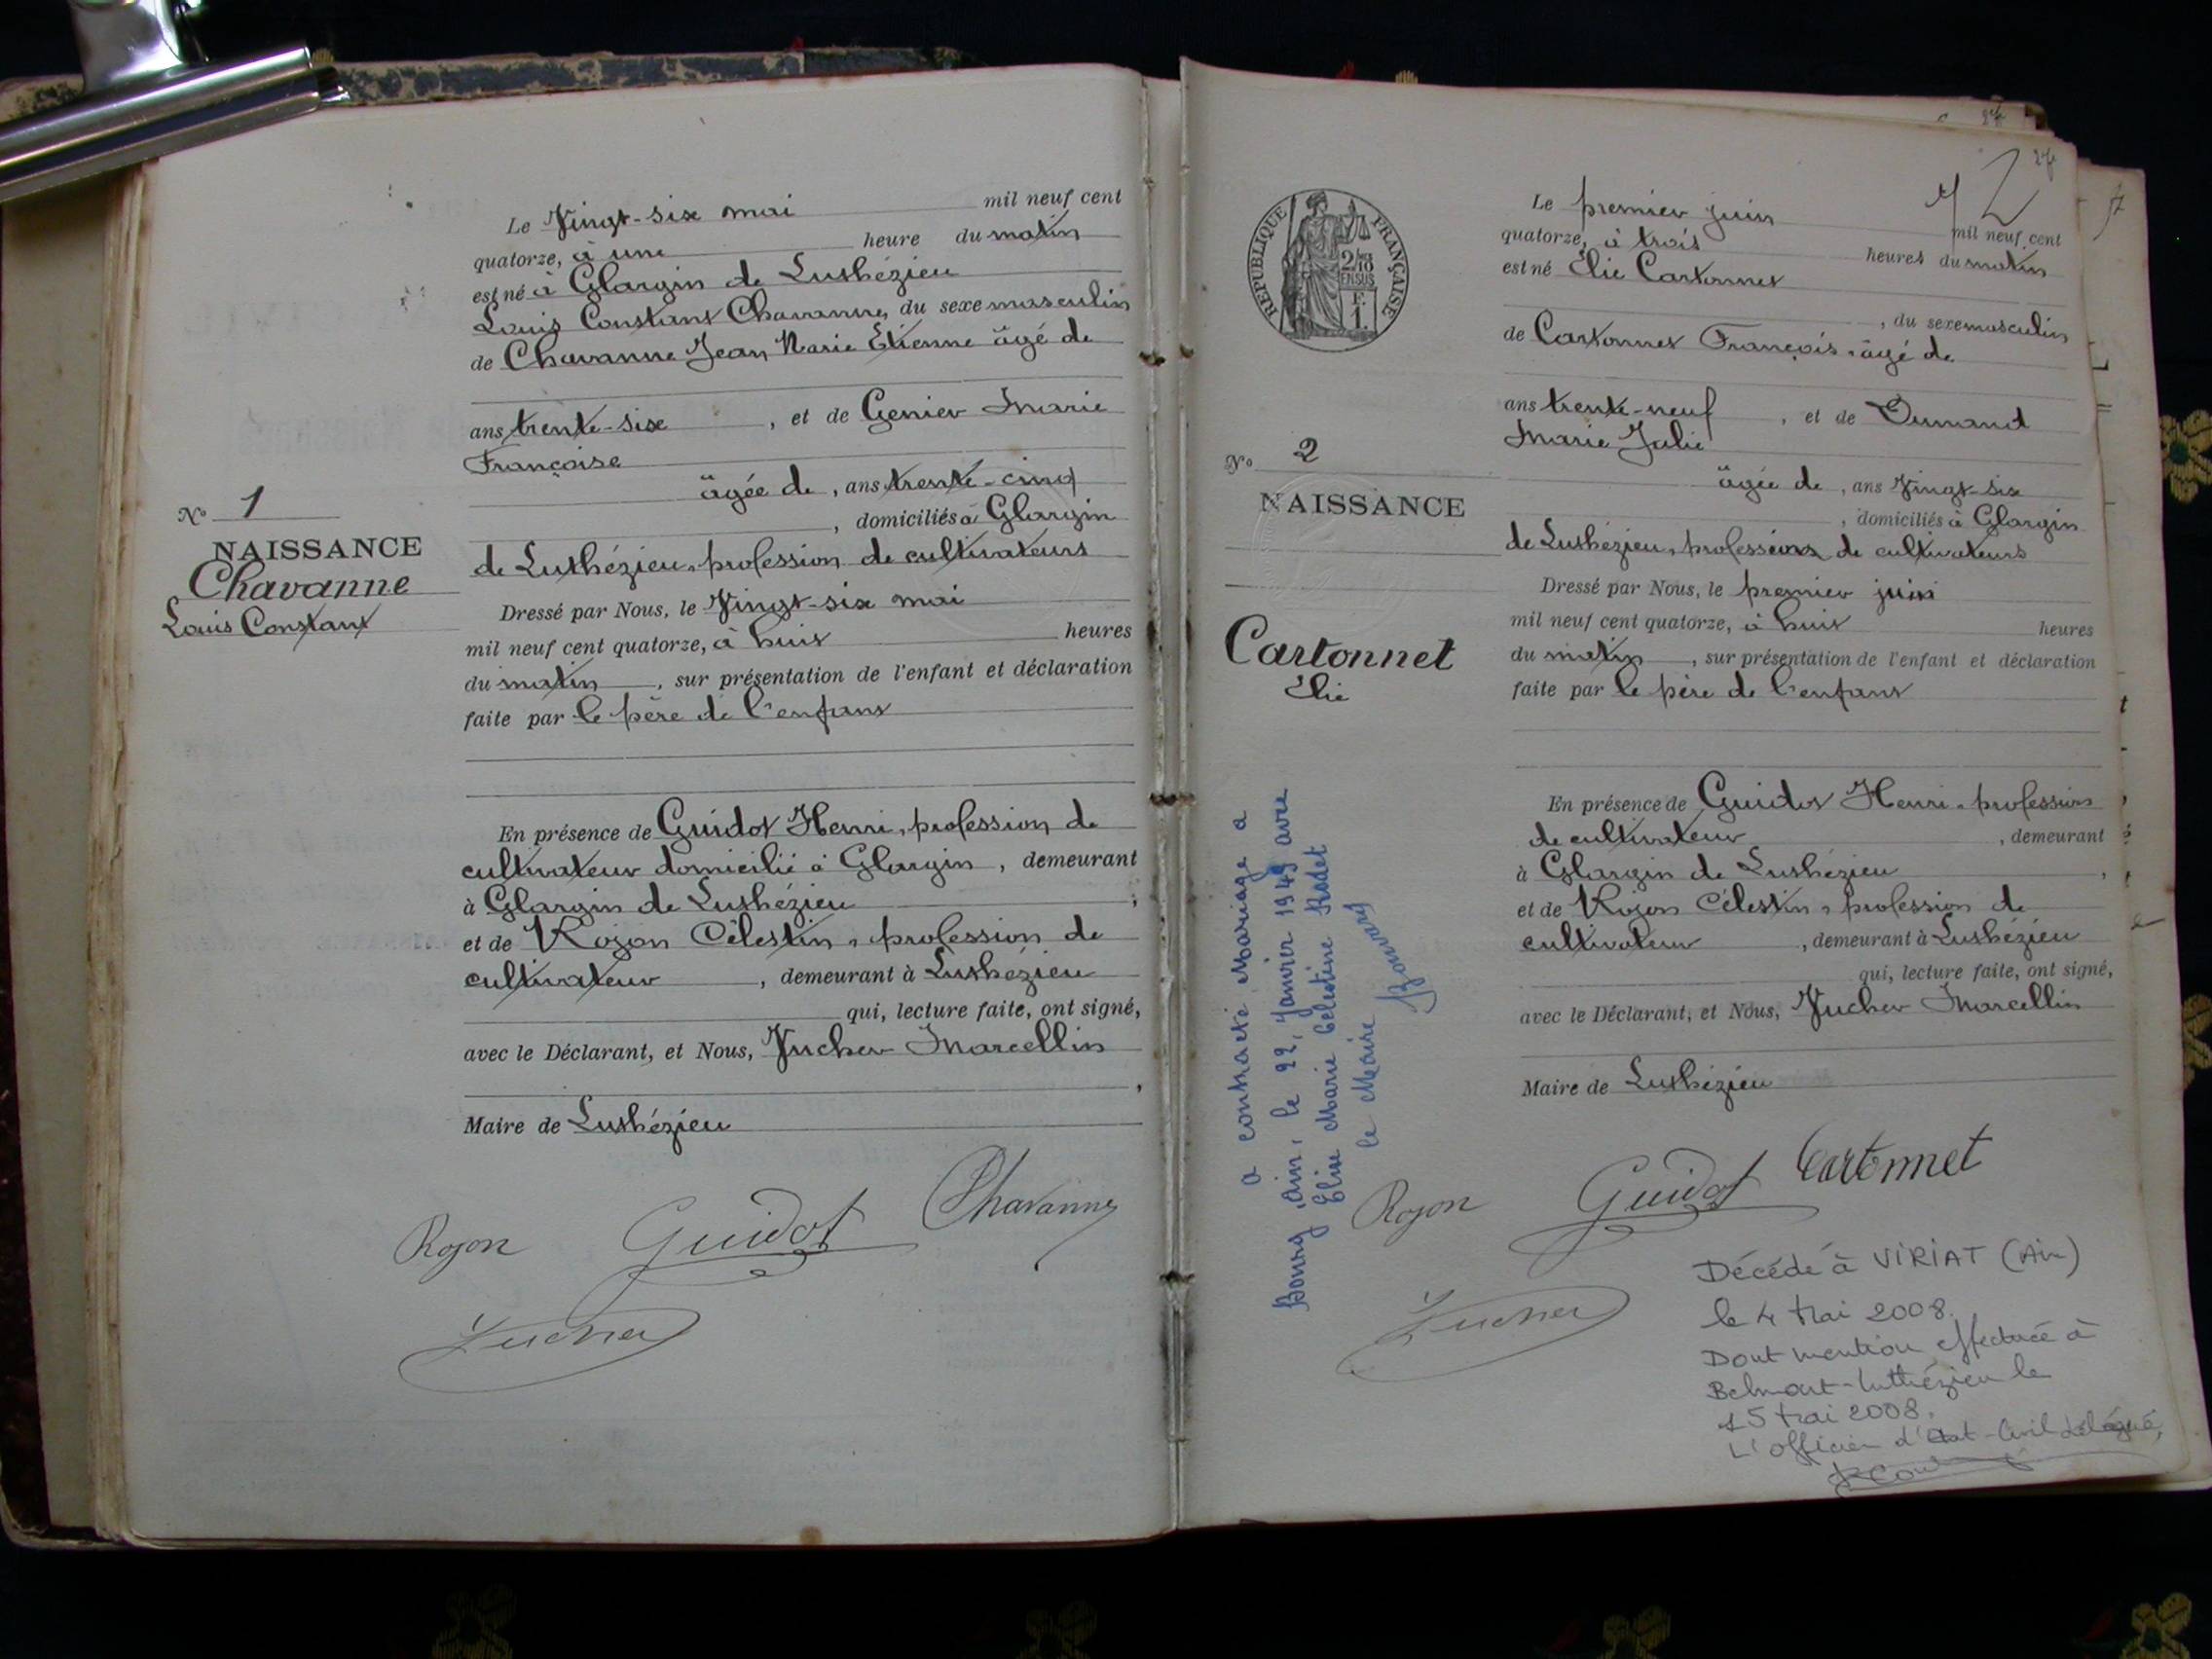 Le Vingt-six mai mil neuf cent
quatorze, à une heure du matin
est né à Glargin de Luthézieu
Louis Constant Chavanne, du sexe masculin
de Chavanne Jean Marie Etienne âgé de
ans trente-six, et de Genier Marie
Françoise
âgée de, ans trente-cinq
, domiciliés à Glargin
de Luthézieu, profession de cultivateurs
Dressé par Nous, le Vingt-six mai
mil neuf cent quatorze, à huit heures
du matin, sur présentation de l'enfant et déclaration
faite par le père de l'enfant
En présence de Guidot Henri, profession de
cultivateur domicilié à Glargin, demeurant
à Glargin de Luthézieu;
et de Rojon Célestin, profession de
cultivateur, demeurant à Luthézieu
qui, lecture faite, ont signé,
avec le Déclarant, et Nous, Jucher Marcellin
,
Maire de Luthézieu
No 1
NAISSANCE
Chavanne
Louis Constant
Rojon Guidot Chavanne
Jucher
2
RÉPUBLIQUE FRANÇAISE
2/10
EN SUS
F.
1.
Le premier juin mil neuf cent
quatorze, à trois heures du matin
est né Élie Cartonnet
, du sexe masculin
de Cartonnet François, âgé de
ans trente-neuf, et de Dumand
Marie Julie
âgée de, ans Vingt-six
, domiciliés à Glargin
de Luthézieu, profession de cultivateurs
Dressé par Nous, le premier juin
mil neuf cent quatorze, à huit heures
du matin, sur présentation de l'enfant et déclaration
faite par le père de l'enfant
En présence de Guidot Henri, profession
de cultivateur, demeurant
à Glargin de Luthézieu,
et de Rojon Célestin, profession de
cultivateur, demeurant à Luthézieu
qui, lecture faite, ont signé,
avec le Déclarant, et Nous, Jucher Marcellin
Maire de Luthézieu
No 2
NAISSANCE
Cartonnet
Élie
a contracté Mariage a
Bourg, Ain, le 22, Janvier 1949 avec
Elise Marie Celestine Rodet
le Maire
Bouvard
Rojon Guidot Cartonnet
Jucher
Décédé à VIRIAT (Ain)
le 4 Mai 2008.
Dont mention effectuée à
Belmont-Luthézieu le
15 Mai 2008.
L'officier d'Etat-Civil délégué,